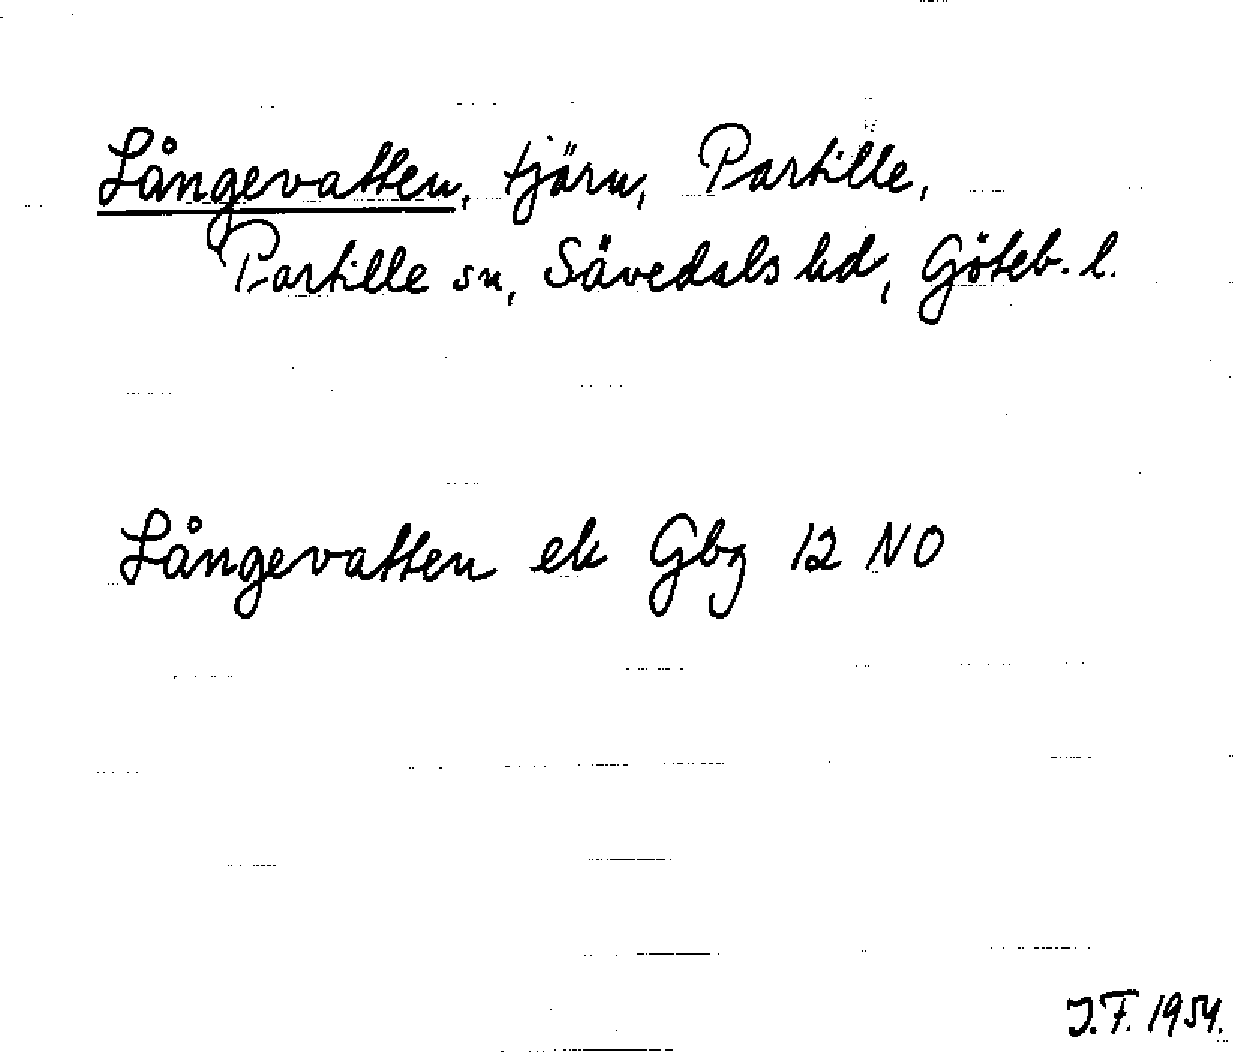 Långevatten, tjärn, Partille,
Partille sn, Sävedals hd, Göteb. l.
Långevatten ek Gbg 12 NO
J.F. 1954.